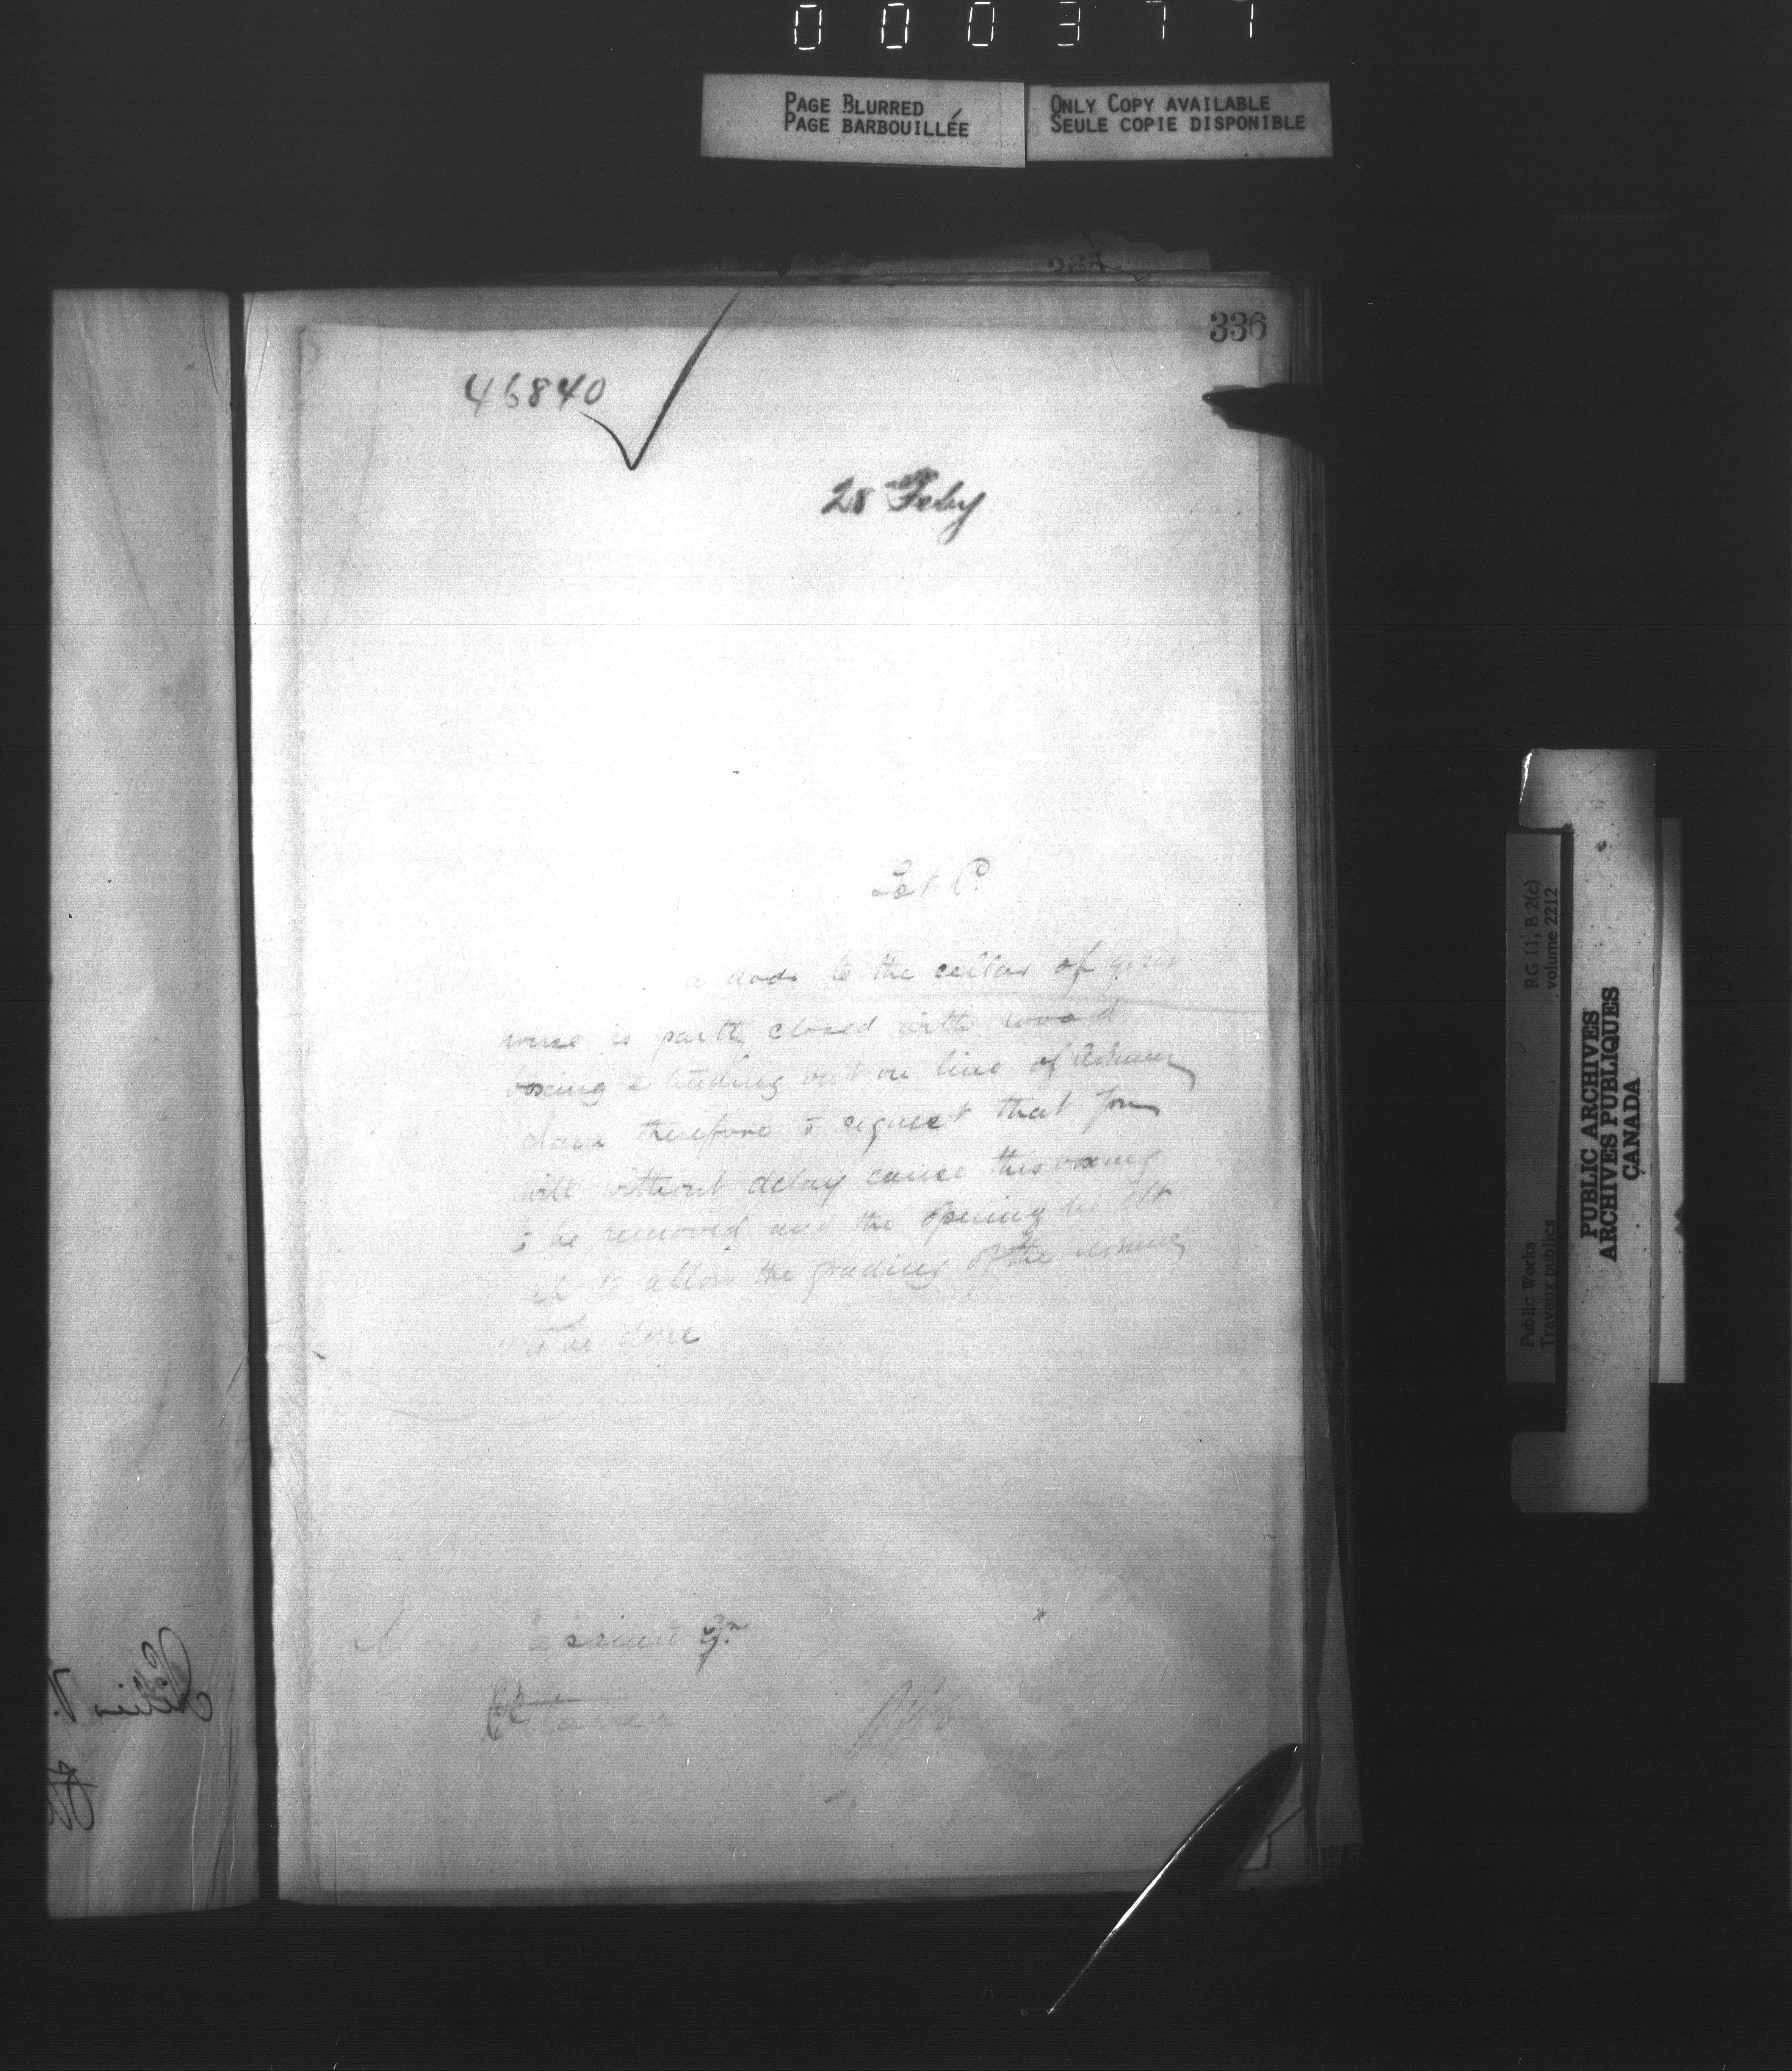 000377
PAGE BLURRED
PAGE BARBOUILLÉE
ONLY COPY AVAILABLE
SEULE COPIE DISPONIBLE
336
46840
28 Feby
Lot P.
a door to the cellar of your
house is partly closed with wood
boxing extending out on line of Avenue
I have therefore to request that you
will without delay cause this boxing
to be removed and the opening
to allow the grading of the Avenue
to be done
Ottawa
RG 11, B 2(c)
volume 2212
Public Works
Travaux publics
PUBLIC ARCHIVES
ARCHIVES PUBLIQUES
CANADA